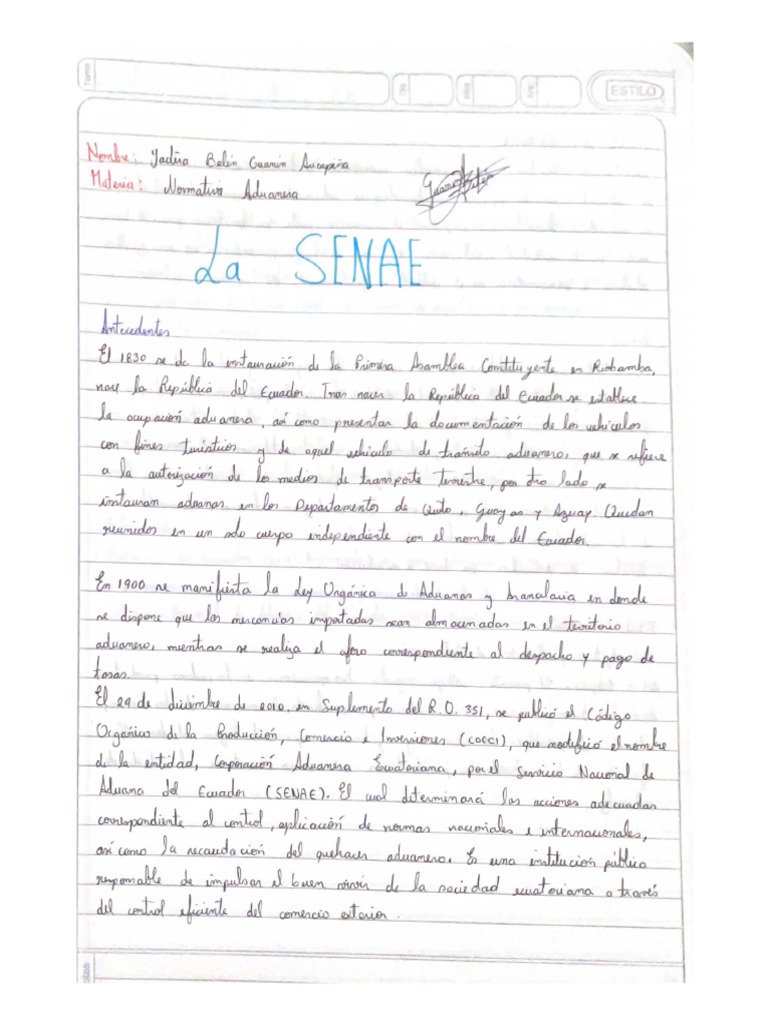 ESTILO
Nombre: Yadira Belén Guanín Aucapiña
Materia: Normativa Aduanera
La SENAE
Antecedentes
El 1830 se da la instauración de la Primera Asamblea Constituyente en Riobamba,
nace la República del Ecuador. Tras nacer la República del Ecuador se establece
la ocupación aduanera, así como presentar la documentación de los vehículos
con fines turísticos y de aquel vehículo de tránsito aduanero, que se refiere
a la autorización de los medios de transporte terrestre, por otro lado se
instauran aduanas en los Departamentos de Quito, Guayas y Azuay. Quedan
reunidos en un solo cuerpo independiente con el nombre del Ecuador.
En 1900 se manifiesta la Ley Orgánica de Aduanas y Arancelaria en donde
se dispone que las mercancías importadas sean almacenadas en el territorio
aduanero, mientras se realiza el aforo correspondiente al despacho y pago de
tasas.
El 29 de diciembre de 2010, en Suplemento del R.O. 351, se publicó el Código
Orgánico de la Producción, Comercio e Inversiones (COCCI), que modificó el nombre
de la entidad, Corporación Aduanera Ecuatoriana, por el Servicio Nacional de
Aduana del Ecuador (SENAE). El cual determinará las acciones adecuadas
correspondiente al control, aplicación de normas nacionales e internacionales,
así como la recaudación del quehacer aduanero. Es una institución pública
responsable de impulsar el buen vivir de la sociedad ecuatoriana a través
del control eficiente del comercio exterior.